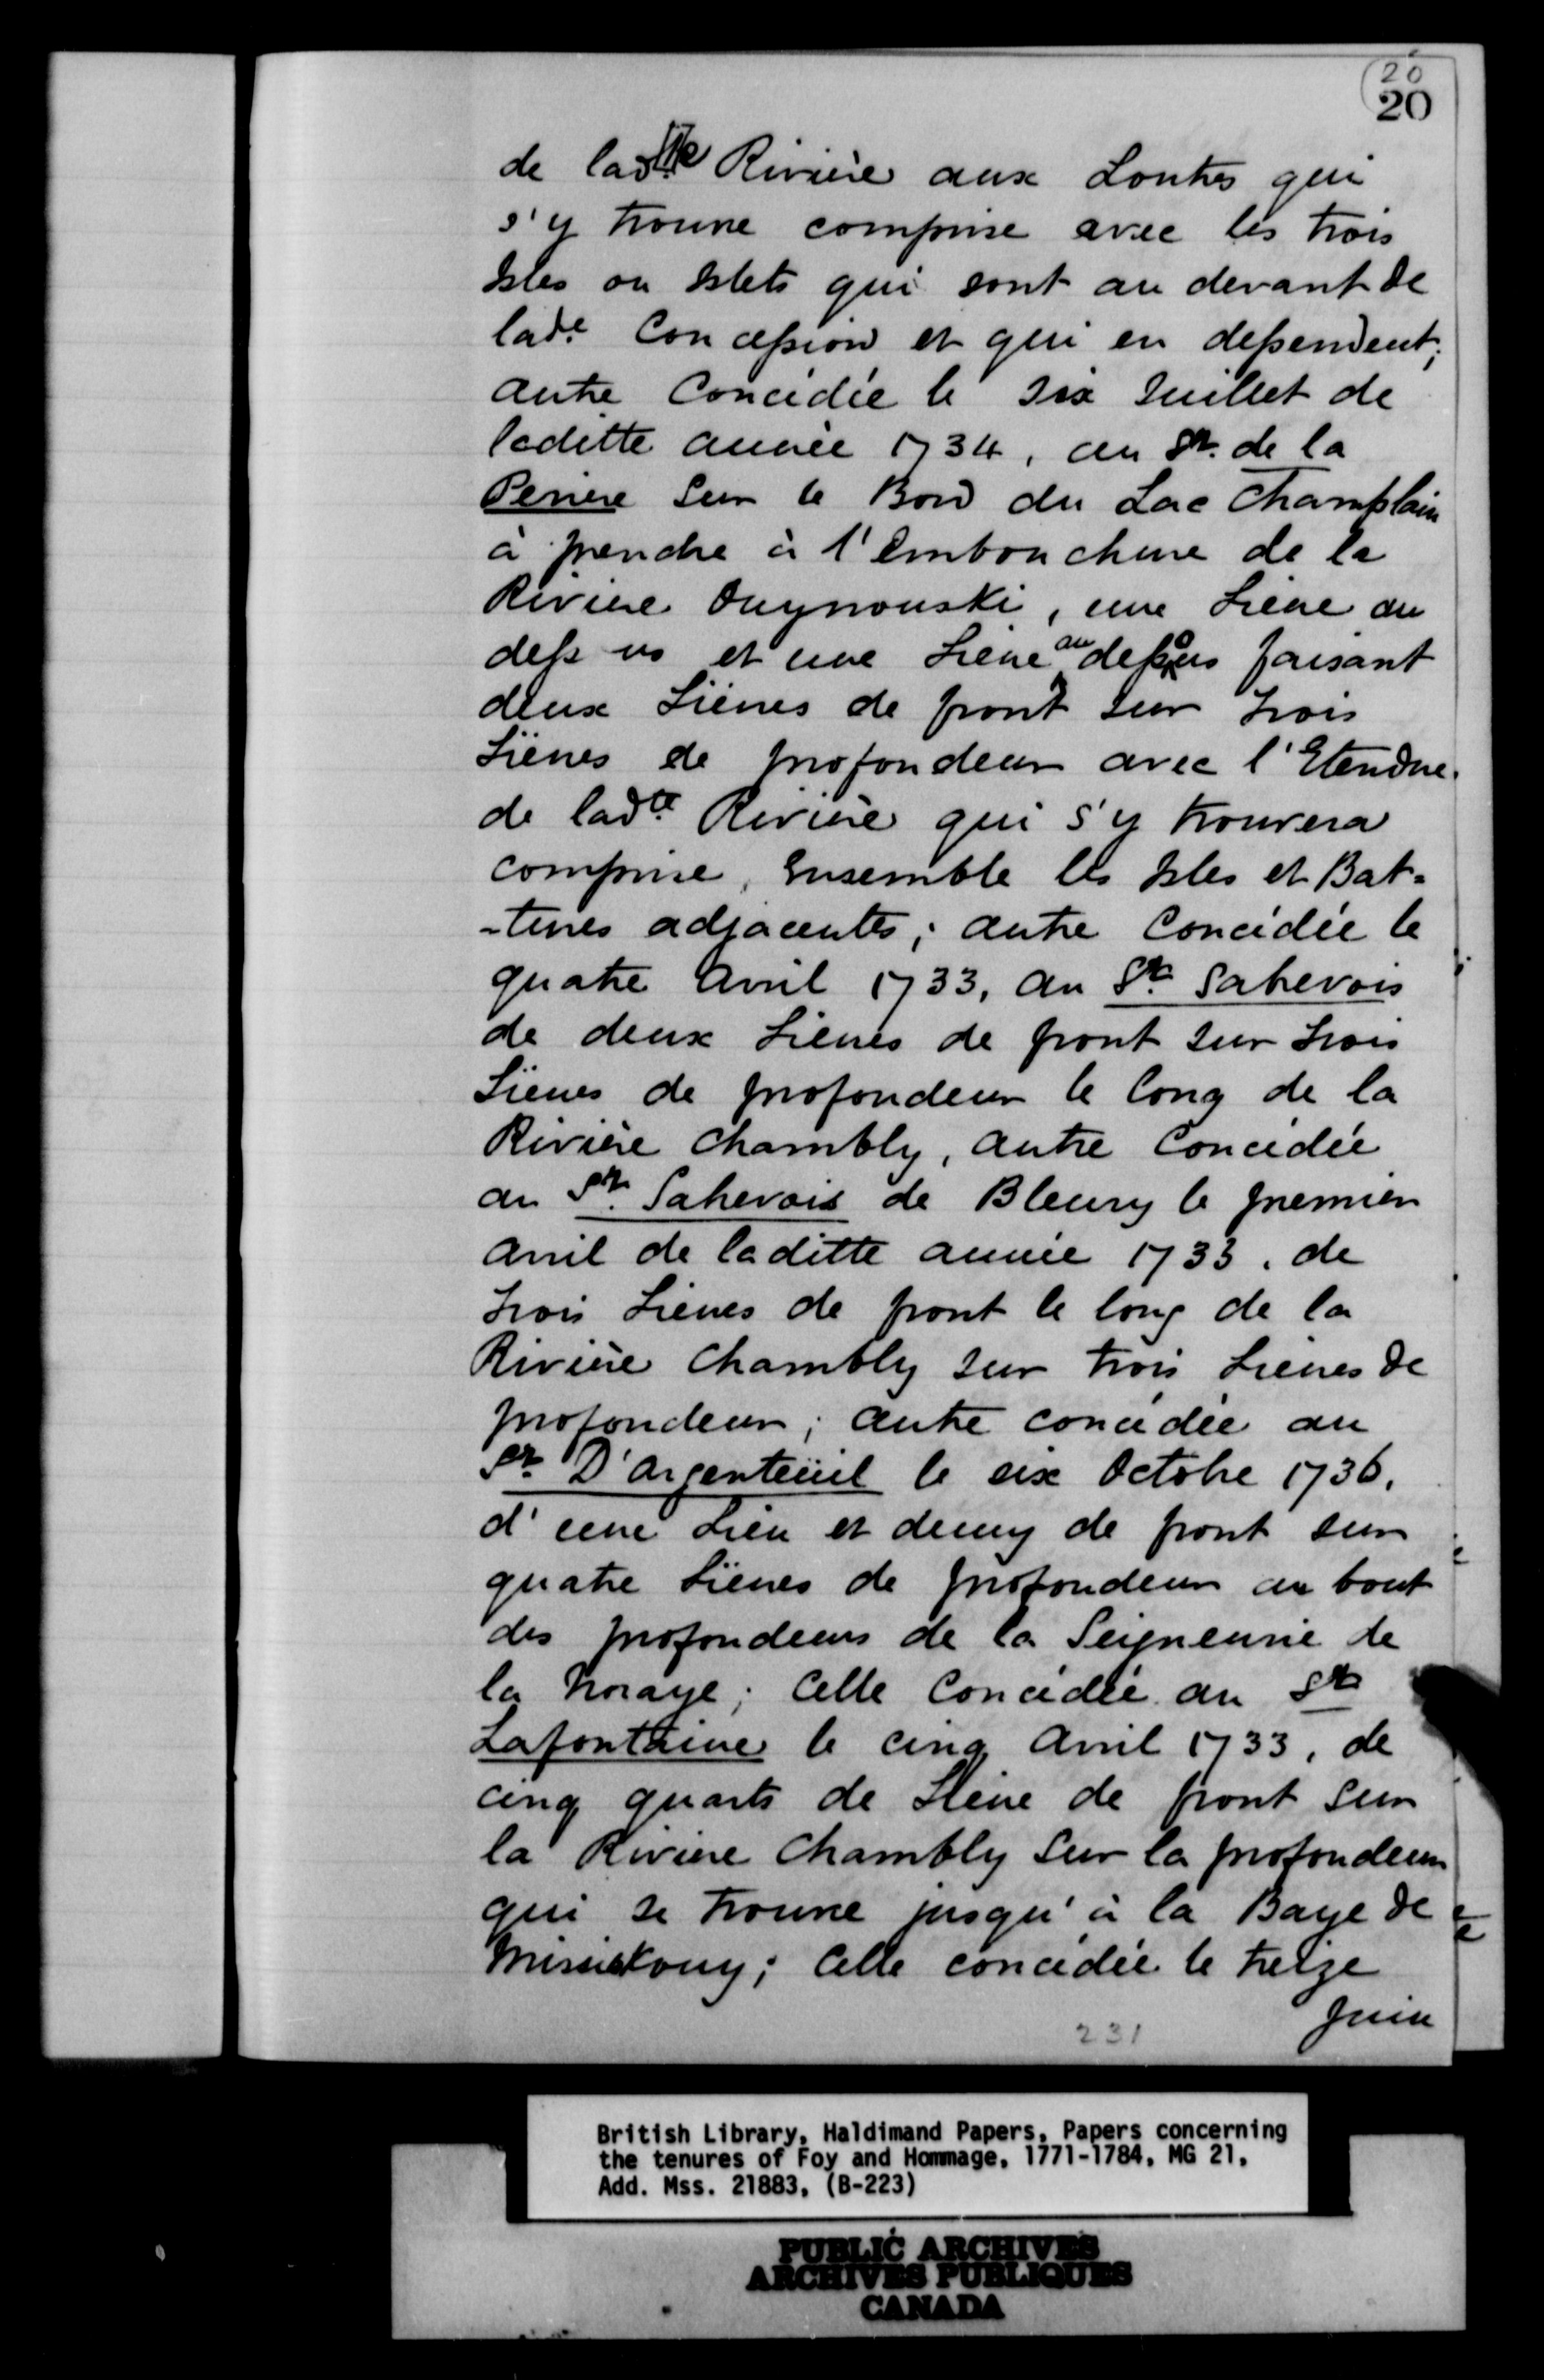 20
20
de lad.te Riviere aux Loutres qui
s'y trouve comprise avec les trois
Isles ou Islets qui sont au devant de
lad.e Concession et qui en dependent;
autre Concédée le six Juillet de
laditte année 1734, au Sr. de la
Periere sur le Bord du Lac Champlain
à prendre à l'Embouchure de la
Riviere Ouynouski, une Lieue au
dessus et une Lieue au dessous faisant
deux Liëues de front sur trois
Liëues de profondeur avec l'Etendue
de lad.te Riviere qui s'y trouvera
comprise, Ensemble les Isles et Bat-
-tures adjacentes; autre Concédée le
quatre Avril 1733, au Sr. Sabrevois
de deux Lieues de front sur trois
Liëues de profondeur le long de la
Rivière Chambly, autre Concédée
au Sr. Sabrevois de Bleury le premier
Avril de laditte année 1733. de
trois Lieues de front le long de la
Rivière Chambly sur trois Lieues de
profondeur; autre concédée au
Sr. D'Argenteüil le six Octobre 1736,
d'une Lieu et demy de front sur
quatre Liëues de profondeur au bout
des profondeurs de la Seigneurie de
la Noraye; Celle Concédée au Sr
Lafontaine le cinq Avril 1733, de
cinq quarts de Liëue de front sur
la Riviere Chambly sur la profondeur
qui se trouve jusqu'à la Baye de
Missiskouy; Celle concédée le treize
Juin
231
British Library, Haldimand Papers, Papers concerning
the tenures of Foy and Hommage, 1771-1784, MG 21,
Add. Mss. 21883, (B-223)
PUBLIC ARCHIVES
ARCHIVES PUBLIQUES
CANADA